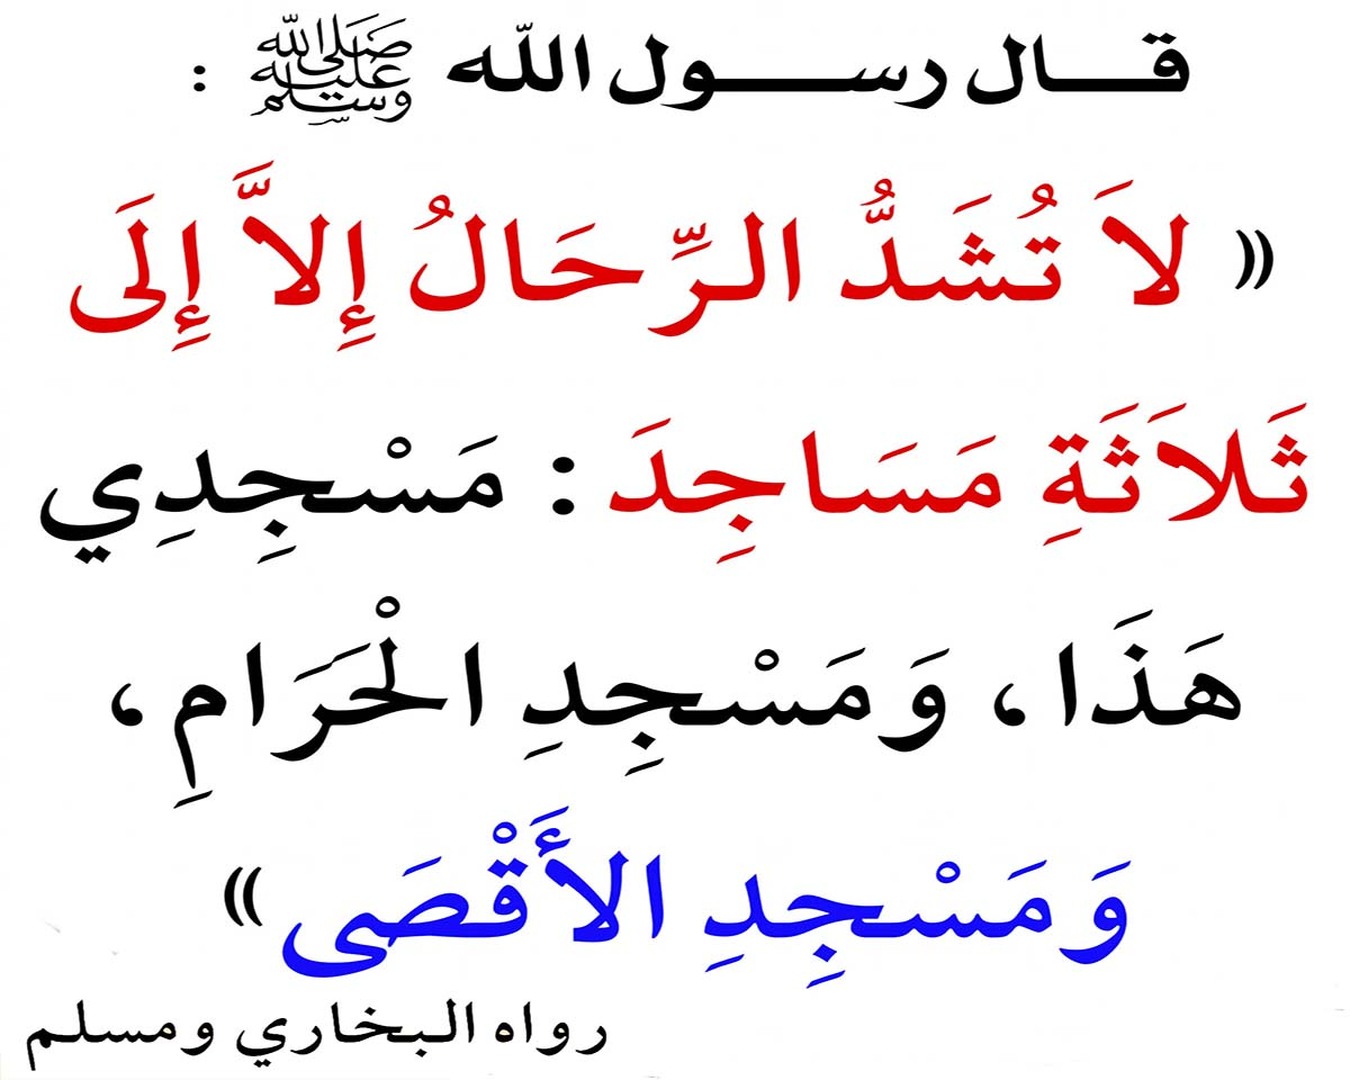 قـــال رســـــول الله ﷺ :
« لاَ تُشَدُّ الـرِّحَالُ إِلاَّ إِلَى
ثَلاَثَةِ مَسَاجِدَ : مَسْجِدِي
هَذَا، وَمَسْجِدِ الْحَرَامِ،
وَمَسْجِدِ الأَقْصَى »
رواه البخاري ومسلم